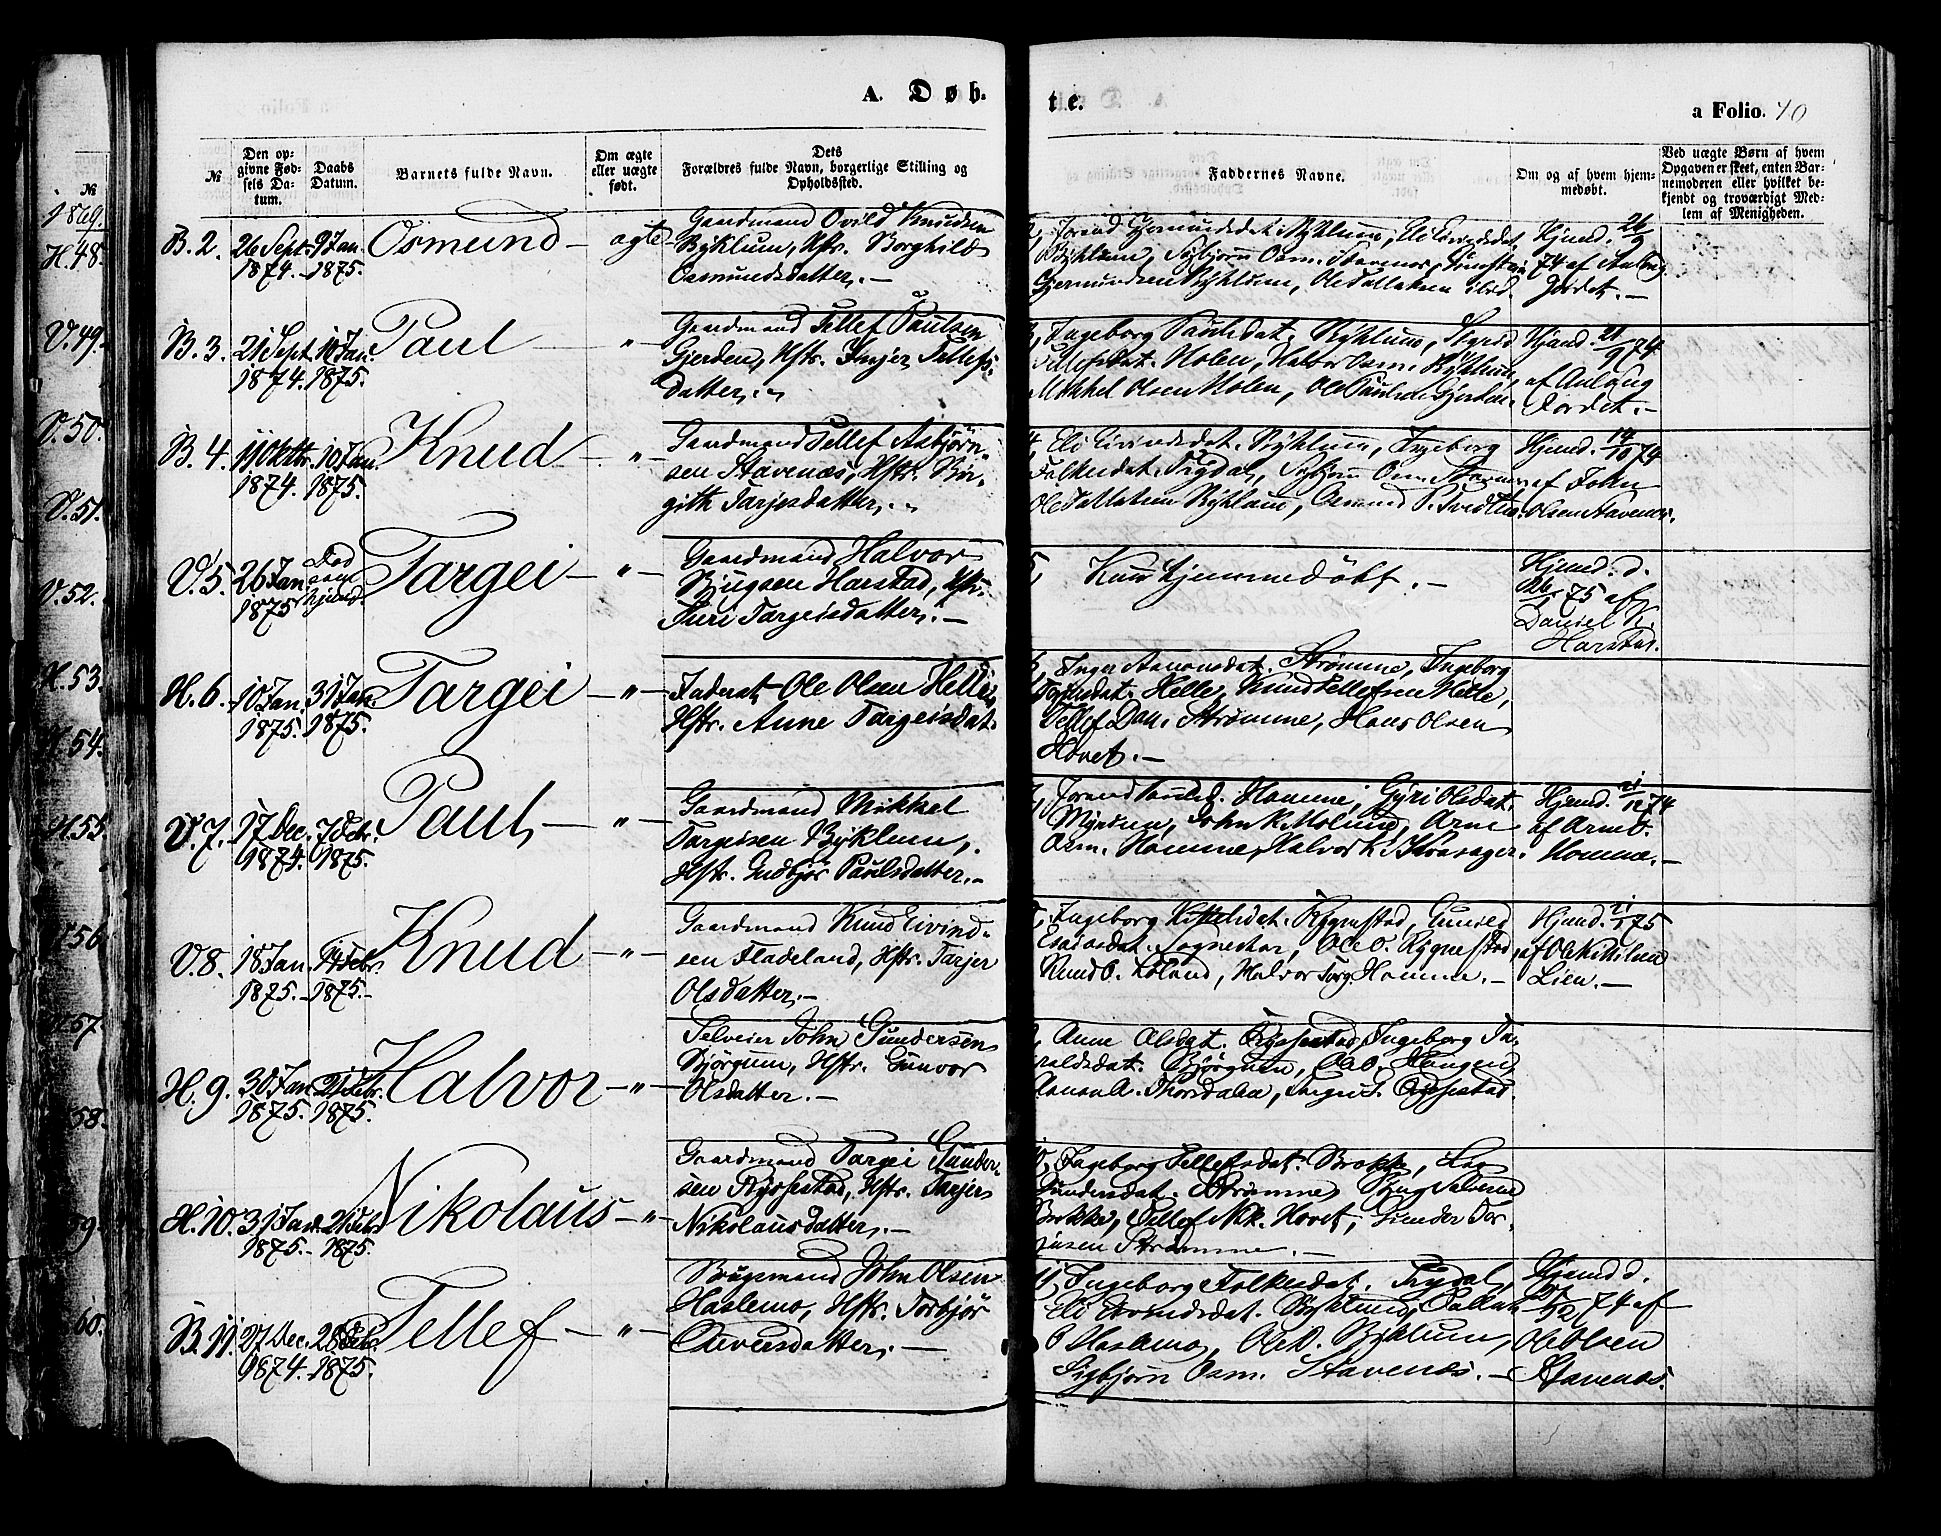 A. Døb- te.
a Folio. 70
№
Den opgivne Fødsels Datum.
Daabs Datum.
Barnets fulde Navn.
Om ægte eller uægte født.
Dets Forældres fulde Navn, borgerlige Stilling og Opholdssted.
Faddernes Navne.
Om og af hvem hjemmedøbt.
Ved uægte Børn af hvem Opgaven er skeet, enten Barnemoderen eller hvilket bekjendt og troværdigt Medlem af Menigheden.
№
1869.
H. 48.
V. 49.
V. 50.
V. 51.
V. 52.
H. 53.
H. 54.
H. 55.
56
57.
58.
59.
60.
B. 2. 26 Sept. 1874. 9 Jan. 1875. Osmund ægte
Gaardmand Ovild Knudsen
Byklum, Hstr. Borghild
Osmundsdatter.
Jorand Gjermundsdat. Byklum, Eli Eivindsdat.
Byklum, Sigbjørn Osm. Stavenes,
Gjermundsen Byklum, Ole Tallaksen ibid.
Hjemd. 26/9
74 af Aslaug
Jordet.
B. 3. 21 Sept. 1874. 10 Jan. 1875. Paul "
Gaardmand Tellef Paulsen
Gjerden, Hstr. Inger Tellefs-
datter.
Ingeborg Paulsdat. Byklum, Sigrid
Tellefsdat. Molen, Halvor Osm. Byklum,
Mikkel Olsen Molen, Ole Paulsen Gjerden.
Hjemd. 21/9 74
af Aslaug
Jordet.
B. 4. 11 Oktbr. 1874. 10 Jan. 1875. Knud "
Gaardmand Tellef Asbjørn-
sen Stavenæs, Hstr. Bir-
gith Tarjesdatter.
4, Eli Eivindsdat. Byklum, Ingeborg
Folkesdat. Trydal, Sigbjørn Osm. Stavenes
Ole Tallaksen Byklum, Osmund P. Tveitten.
Hjemd. 12/10 74
af John
Olsen Stavenes.
V. 5. 26 Jan 1875 Død som hjemd. Targei "
Gaardmand Halvor
Bjugsen Harstad, Hstr.
Turi Targeisdatter.
5, Kun hjemmedøbt.
Hjemd. d.
26/1 75 af
Daniel K.
Harstad.
H. 6. 10 Jan. 1875. 31 Jan. 1875. Targei "
Inderst Ole Olsen Helle,
Hstr. Anne Targeisdat.
Inger Aanonsdat. Strømme, Ingeborg
Helle, Knud Tellefsen Helle,
Tellef Dan. Strømme, Hans Olsen
Hovet.
V. 7. 17 Dec. 1874. 7 Febr. 1875. Paul "
Gaardmand Mikkel
Targeisen Byklum,
Hstr. Gudbjør Paulsdatter.
7, Jorand Paulsd. Homme, Gyri Olsdat.
Myrum, John K. Molund, Arne
Osm. Homme, Halvor K. Straager.
Hjemd. 21/12 74
af Arne O.
Homme.
V. 8. 18 Jan. 1875. 14 Febr. 1875. Knud "
Gaardmand Knud Eivind-
sen Fladeland, Hstr. Tarjer
Olsdatter.
Ingeborg Kittelsdat. Rygnestad, Gunild
Ole O. Rygnestad,
Knud O. Løland, Halvor Torg. Homme.
Hjemd. 21/1 75
af Ole Kittilsen
Lien.
H. 9. 30 Jan 1875. 21 Febr. 1875. Halvor "
Selveier John Gundersen
Bjørgum, Hstr. Gunvor
Olsdatter.
9, Anne Olsdat. Rysstad, Ingeborg Ha-
raldsdat. Bjørgum, Ole O. Haugen,
Aanon A. Thorsdalen, Targei T. Rysstad.
H. 10. 31 Jan. 1875. 21 Febr. 1875. Nikolaus "
Gaardmand Targei Gunder-
sen Rysstad, Hstr. Tarjer
Nikolausdatter.
10, Ingeborg Tellefsdat. Brokke,
Gundersdat. Strømme, Bjug Salvesen
Brokke, Tellef Nik. Hovet, Gunder Tor-
jusen Strømme.
B. 11. 27 Dec. 1874. 28 Febr. 1875. Tellef "
Brugsmand John Olsen
Haslemo, Hstr. Torbjør
Eivindsdatter.
11, Ingeborg Folkesdat. Trydal,
Eli Eivindsdat. Byklum, Tallak
O. Haslemo, Ole D. Byklum,
Sigbjørn Osm. Stavenæs.
Hjemd d.
27/12 74 af
Ole Olsen
Stavenæs.